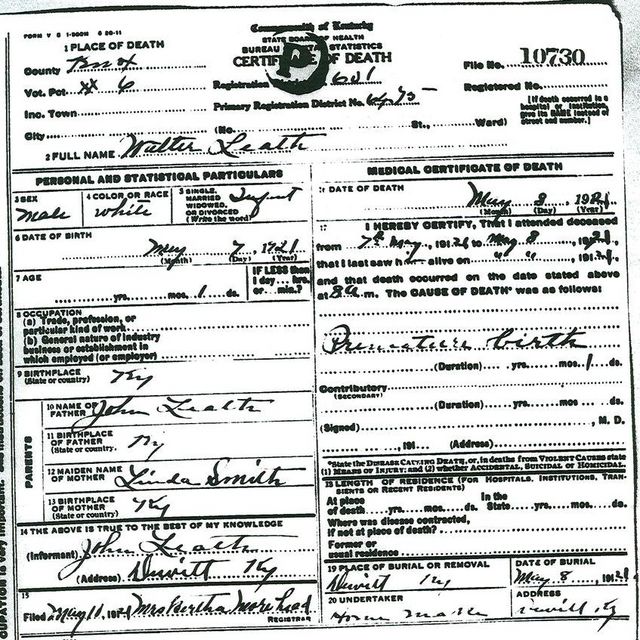 FORM V S 1-200M 6 20-11
Commonwealth of Kentucky
STATE BOARD OF HEALTH
BUREAU STATISTICS
CERTIF OF DEATH
1 PLACE OF DEATH
County Knox
Vot. Pct. XX 6
Inc. Town
City (No. St., Ward)
Registration 601
Primary Registration District No. 6475
File No. 10730
Registered No.
[If death occurred in a hospital or institution, give its NAME instead of street and number.]
2 FULL NAME Walter Leath
PERSONAL AND STATISTICAL PARTICULARS
3 SEX
Male
4 COLOR OR RACE
White
5 SINGLE, MARRIED WIDOWED, OR DIVORCED (Write the word)
Infant
6 DATE OF BIRTH
May 7, 1921
(Month) (Day) (Year)
7 AGE
yrs. mos. 1 ds.
IF LESS than 1 day hrs. or min.?
8 OCCUPATION
(a) Trade, profession, or particular kind of work
(b) General nature of industry business or establishment in which employed (or employer)
9 BIRTHPLACE
(State or country)
Ky
PARENTS
10 NAME OF FATHER
John Leath
11 BIRTHPLACE OF FATHER
(State or country)
Ky
12 MAIDEN NAME OF MOTHER
Linda Smith
13 BIRTHPLACE OF MOTHER
(State or country)
Ky
14 THE ABOVE IS TRUE TO THE BEST OF MY KNOWLEDGE
(Informant) John Leath
(Address) Dewitt Ky
15
Filed May 11, 1921 Mrs Bertha
REGISTRAR
MEDICAL CERTIFICATE OF DEATH
DATE OF DEATH
May 8, 1921
(Month) (Day) (Year)
17 I HEREBY CERTIFY, That I attended deceased
from 7th May, 1921, to May 8, 1921,
that I last saw h alive on " ", 191
and that death occurred on the date stated above
at 8 a.m. The CAUSE OF DEATH* was as follows:
Premature birth
(Duration) yrs. mos. 1 ds.
Contributory
(SECONDARY)
(Duration) yrs. mos. ds.
(Signed) , M. D.
, 191 (Address)
*State the DISEASE CAUSING DEATH, or, in deaths from VIOLENT CAUSES state
(1) MEANS OF INJURY; and (2) whether ACCIDENTAL, SUICIDAL or HOMICIDAL.
18 LENGTH OF RESIDENCE (FOR HOSPITALS, INSTITUTIONS, TRANSIENTS OR RECENT RESIDENTS)
At place of death yrs. mos. ds. In the State yrs. mos. ds.
Where was disease contracted, if not at place of death?
Former or usual residence
19 PLACE OF BURIAL OR REMOVAL
Dewitt Ky
DATE OF BURIAL
May 8, 1921
20 UNDERTAKER
ADDRESS
Dewitt Ky